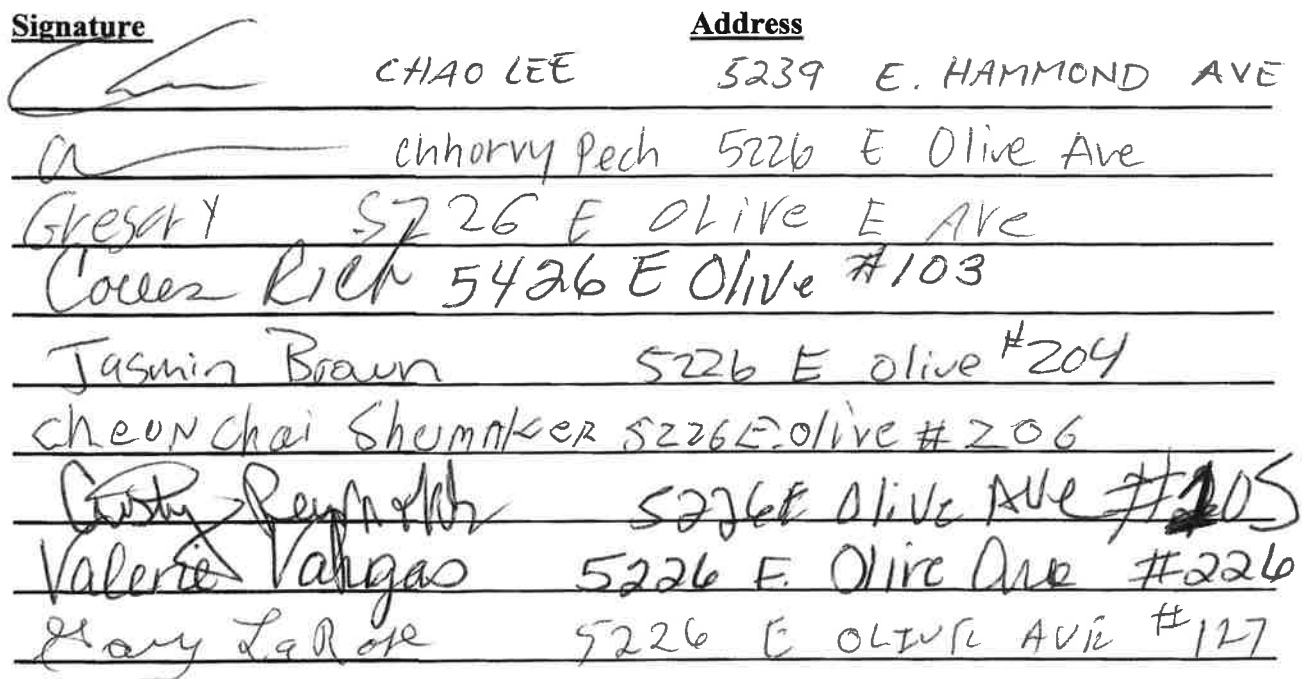 Signature Address
CHAO LEE 5239 E. HAMMOND AVE
Chhorvy Pech 5226 E Olive Ave
Gregory 5226 E OLive E Ave
Rich 5426 E Olive #103
Jasmin Brown 5226 E olive #204
cheunchai Shumaker 5226 E. olive # 206
Cristy Reynolds 5226 E Olive Ave #205
Valerie Vargas 5226 E. Olive Ave #226
Mary LaRose 5226 E OLIVE AVE #127